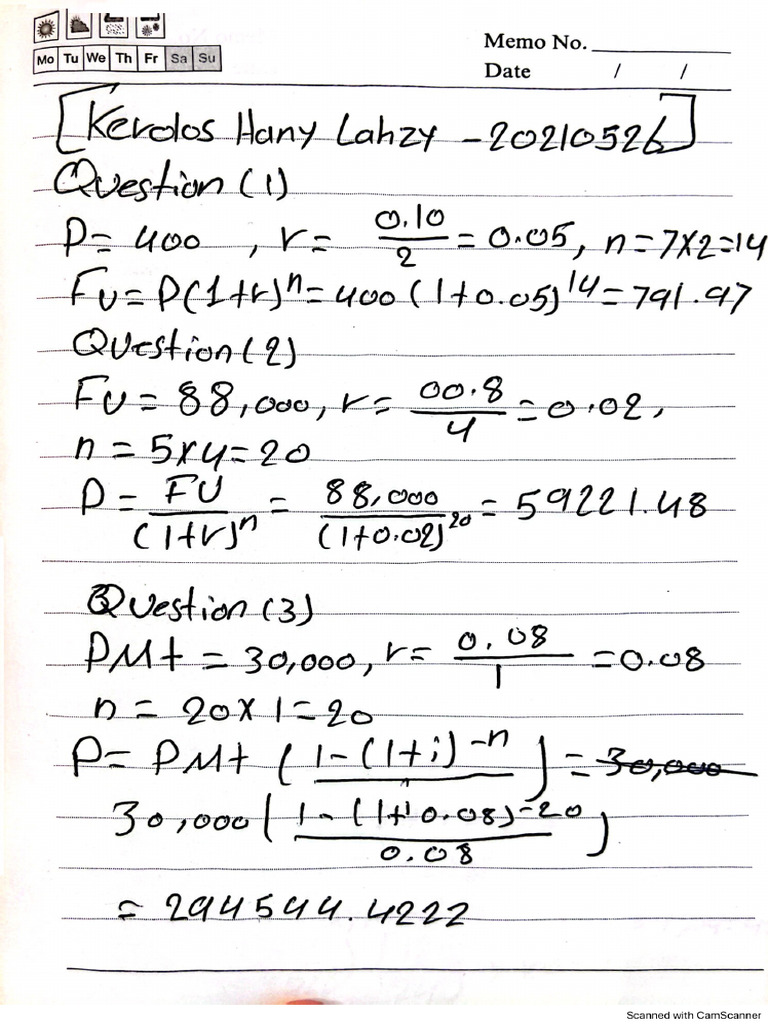 Memo No.
Mo Tu We Th Fr Sa Su
Date / /
[Kerolos Hany Lahzy - 20210526]
Question (1)
P = 400 , r = 0.10/2 = 0.05, n = 7×2=14
FV = P(1+r)^n = 400 (1+0.05)^14 = 791.97
Question (2)
FV = 88,000, r = 00.8/4 = 0.02,
n = 5×4=20
P = FV/(1+r)^n = 88,000/(1+0.02)^20 = 59221.48
Question (3)
PMt = 30,000, r = 0.08/1 = 0.08
n = 20×1=20
P = PMt ((1-(1+i)^-n)/) = 30,000
30,000((1-(1+0.08)^-20)/0.08)
= 294544.4222
Scanned with CamScanner